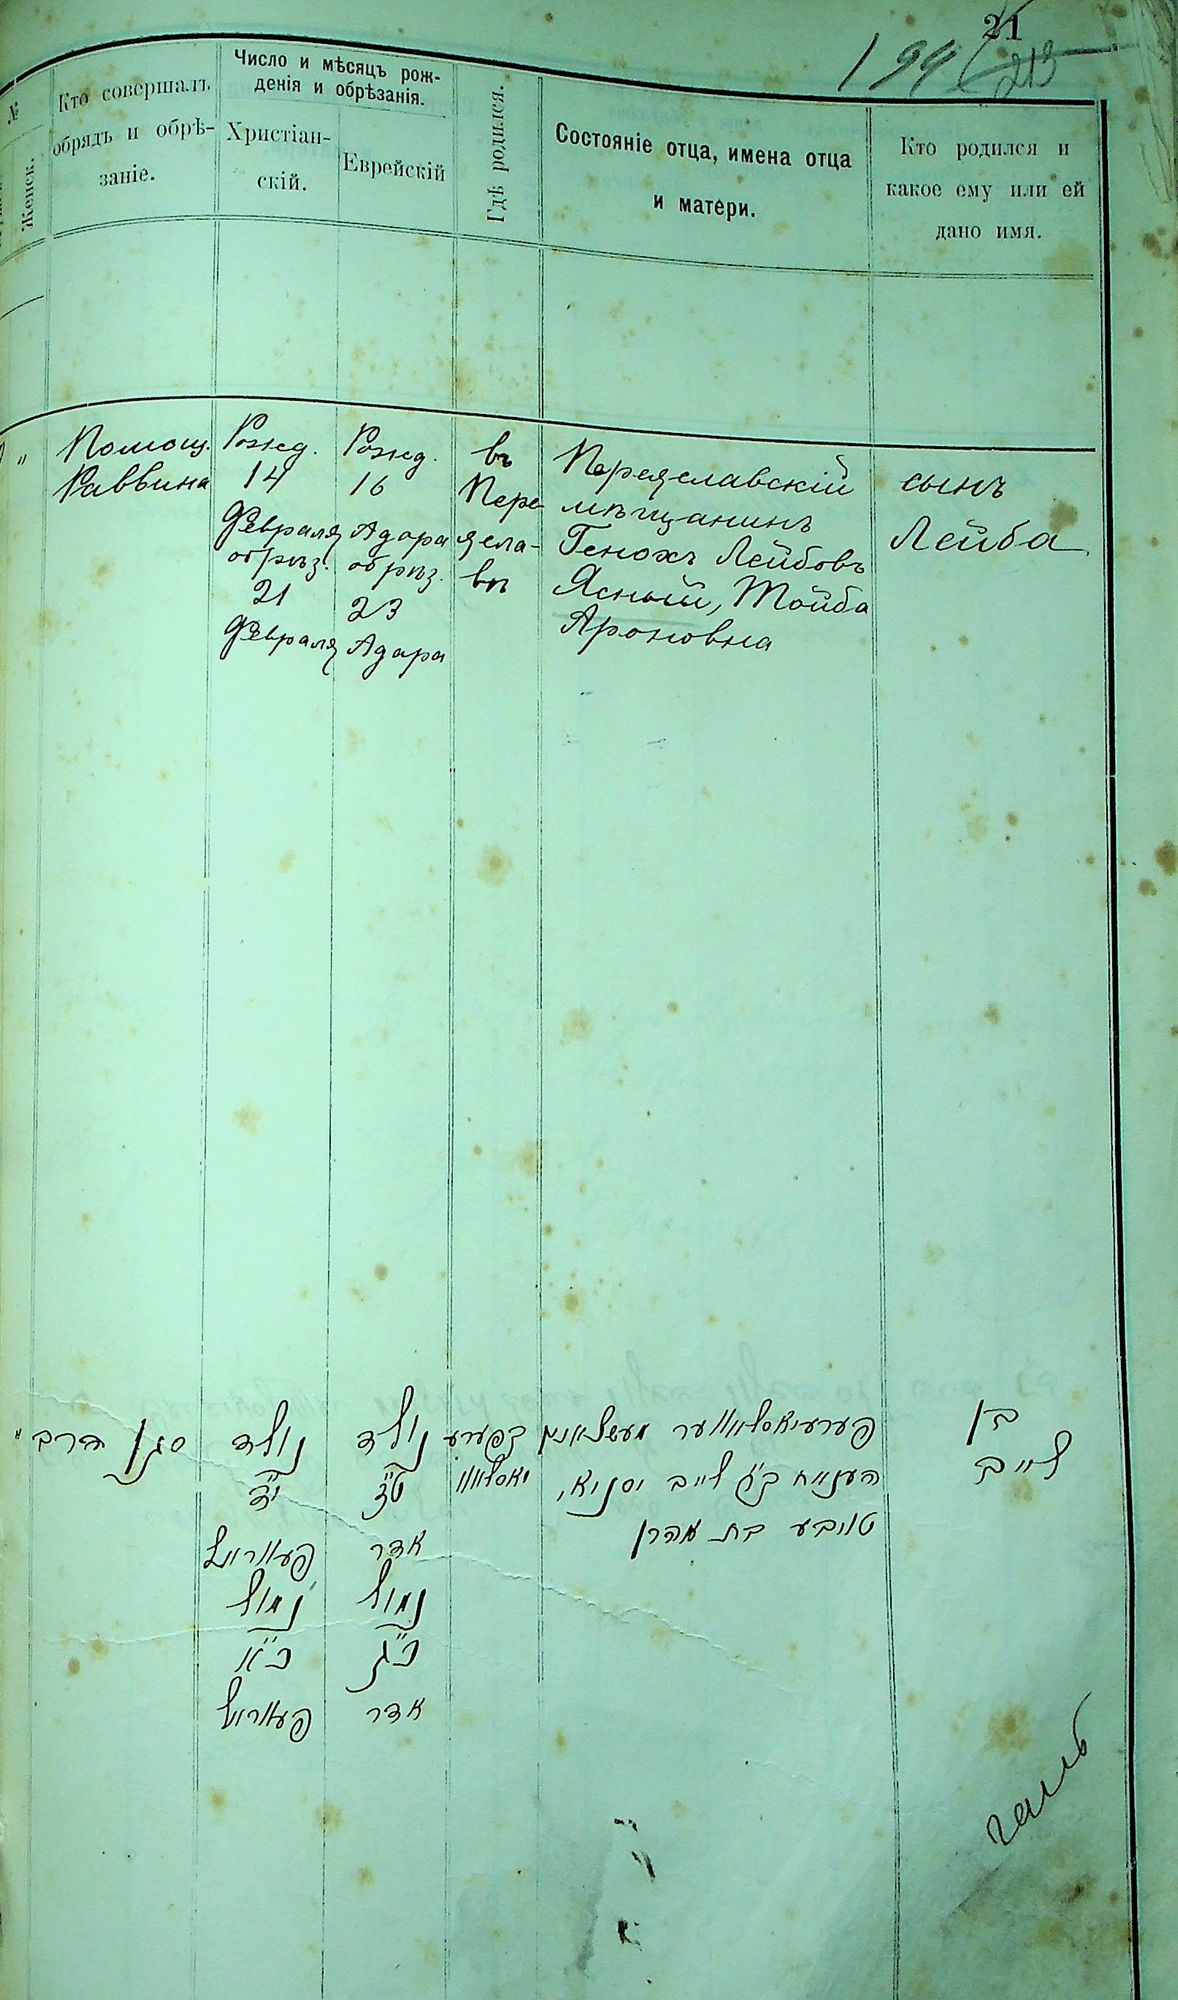 21
199
213
№
Женск.
Кто совершалъ
обрядъ и обрѣ-
заніе.
Число и мѣсяцъ рож-
денія и обрѣзанія.
Христіан-
скій.
Еврейскій
Гдѣ родился.
Состояніе отца, имена отца
и матери.
Кто родился и
какое ему или ей
дано имя.
"
Помощ.
Раввина
Рожд.
14
Февраля
обрѣз.
21
Февраля
Рожд.
16
Адара
обрѣз.
23
Адара
въ
Пере-
ясла-
вѣ
Переяславскій
мѣщанинъ
Генохъ Лейбовъ
Ясный, Тойба
Ароновна
сынъ
Лейба
"
סגן הרב
נולד
י"ד
פעווראל
נמול
כ"א
פעווראל
נולד
ט"ז
אדר
נמול
כ"ג
אדר
בפערע
יאסלאוו
פערעיאסלאווער מעשצאנין
העניך ב"ר לייב יסניא,
טויבע בת אהרן
בן
לייב